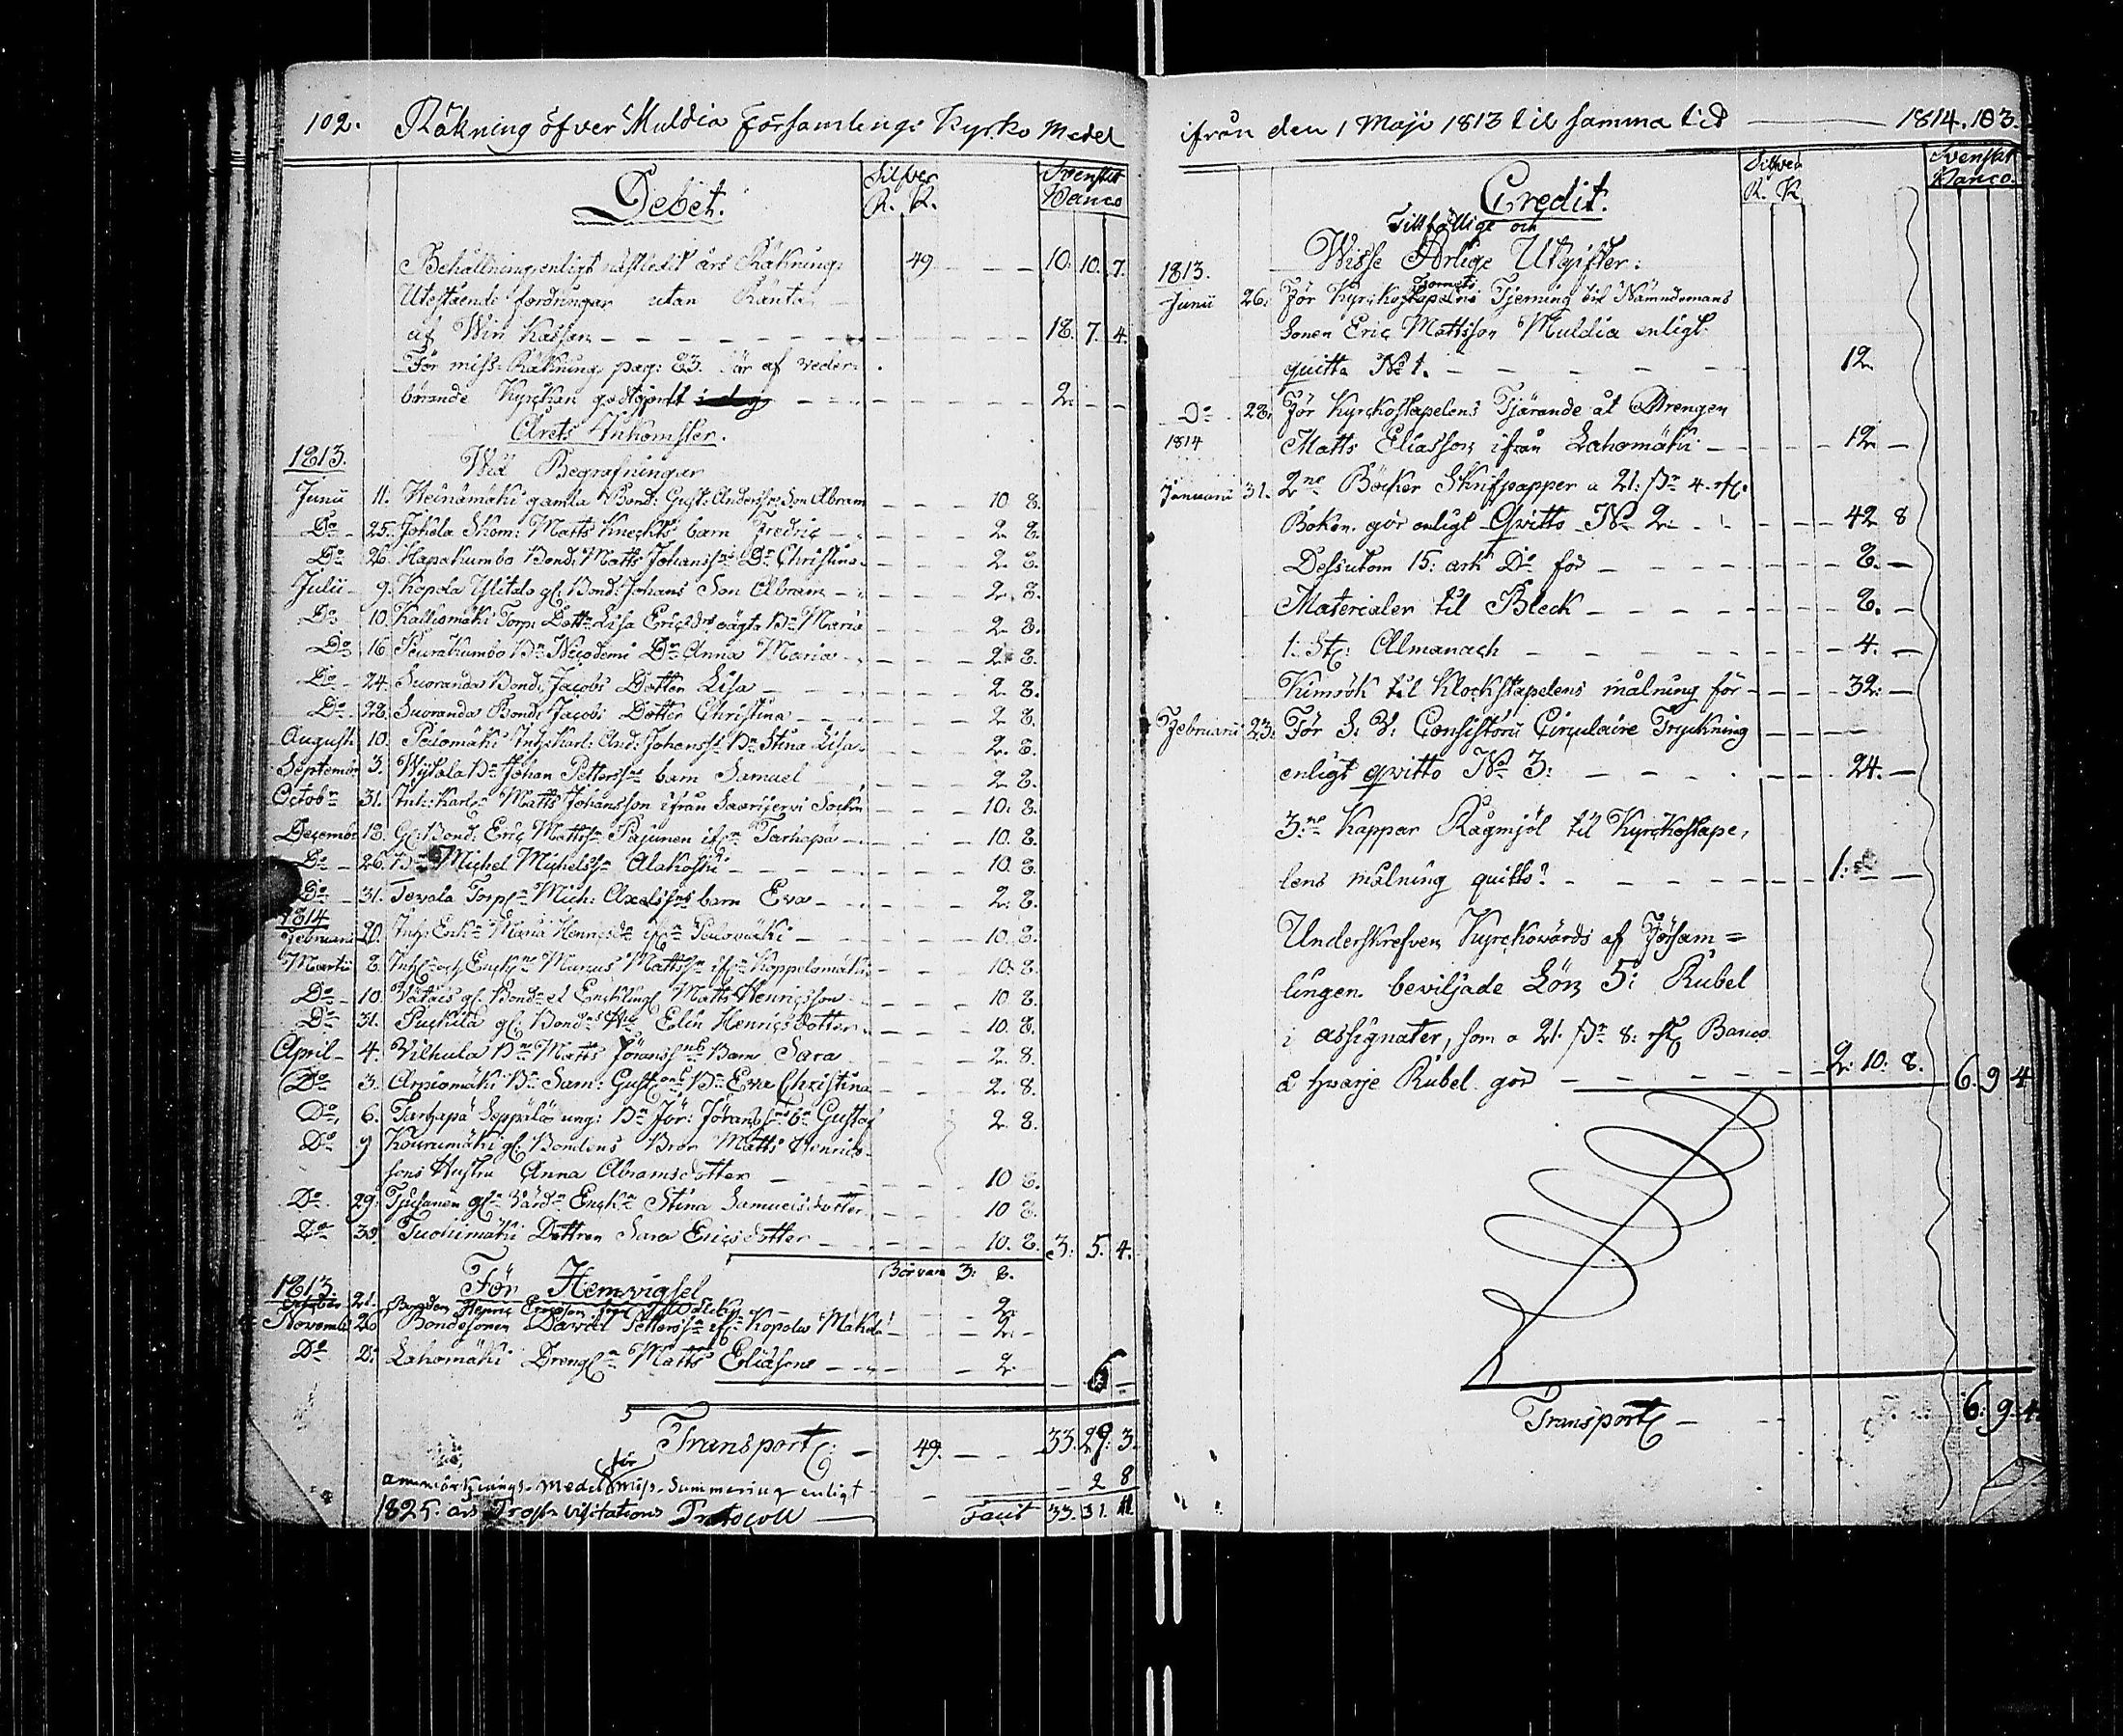 102. Räkning öfver Muldia Församlings Kyrko Medel
Debet.
Silfver
R. K.
Svenskt
Banco
Behållning enligt nästledit års Räkning 49 10. 10. 7.
Utestående fordringar utan Ränta
af Win Kassan 18. 7. 4.
För miss-Räkning pag: 83. här af veder-
börande Kyrckan godtgjort 2.
Årets Inkomster.
1813. Wid Begrafningar
Junii 11. Heinämäki gamla Bond: Gust: Anderss: Son Abram 10 8.
Do 25. Jokela Skom: Matts Knechts barn Fredric 2. 8.
Do 26. Hapakumbo Bond: Matts Johanss: Dr Christina 2. 8.
Julii 9. Kopola Ylitalo gl: Bond: Johans Son Abram 2. 8.
Do 10. Kalliomäki Torp: Dott: Lisa Ericsdrs oägta Bn Maria 2. 8.
Do 16 Peurakumbo Bn Nicodemi Dr Anna Maria 2. 8.
Do 24. Suoranda Bond: Jacobs Dotter Lisa 2. 8.
Do 28. Suoranda Bond: Jacobs Dotter Christina 2 8.
August: 10. Palomäki Inh: Karl: And: Johanss: Bn Stina Lisa 2. 8.
Septembr 3. Wijkala Bn Johan Petterssns barn Samuel 2 8.
Octobr 31. Inh: Karln Matts Johansson ifrån Saarijervi Sockn 10. 8.
Decembr 18. Gl: Bond: Eric Mattssn Pajunen ifrn Tarhapä 10. 8.
Do 26. Bn Michel Michelssn Alakoski 10. 8.
Do 31. Tevala Torpn Mich: Axelssns barn Eva 2. 8.
1814
Februarii 20. Inh: Enkn Maria Hennesdr ifrn Palomäki 10. 8.
Martii 8. Inhn och Enkln Marcus Mattssn ifrn Koppelomäki 10. 8.
Do 10. Vätäis gl: Bonde et Encklingn Matts Henricsson 10 8.
Do 31. Puckila gl: Bondns Hu Elin Henricsdotter 10. 8.
April 4. Vilhula Bn Matts Jöranssns Barn Sara 2. 8.
Do 3. Arpiomäki Bn Sam: Gustns Bn Eva Christina 2. 8.
Do 6. Tarhapä Seppälä ung: Bn Jör: Jöranssns bn Gustaf 2 8.
Do 9 Kourumäki gl: Bondens Bror Matts Henrics-
sons Hustru Anna Abramsdotter 10 8.
Do 29. Tjusanen gln Värdn Enckn Stina Samuelsdotter 10 8.
Do 30. Tuohimäki Dottren Sara Ericsdotter 10. 8. 3. 5. 4.
Bör vara 3: 8.
1813. För Hemvigsel
October 21. Bonden Henric Ericsson 2.
Novemb: 26 Bondesonen David Petterssn ifrn Kopola Mäkelä 2.
Do D: Lahomäki Drengn Matts Eliasson 2. 6
Transport 49. 33. 29. 3.
anmärknings-Medel för miss-Summering enligt 2 8
1825. års Prosts visitations Protocoll Facit 33. 31. 11
ifrån den 1 Maji 1813 til samma tid 1814. 103.
Credit.
Silfver
R. K.
Svenskt
Banco.
Tillfällige och
1813. Wisse Årlige Utgifter:
Tornets
Junii 26. För Kyrckostapelns Tjerning til Nämndemans
Sonen Eric Mattsson Muldia enligt
quitto No 1. 12.
Do 28. För Kyrckostapelens Tjärande åt Drengen
1814 Matts Eliasson ifrån Lahomäki 12
Januarii 31. 2ne Böcker Skrifpapper a 21: sk 4. rst:
Boken gör enligt Qvitto No 2. 42 8
Dessutom 15: ark Do för 8.
Materialer til Bleck 8.
1: St: Almanach 4.
Kimrök til Klockstapelens målning för 32.
Februarii 23. För S: V: Consistorii Circulaire Tryckning
enligt qvitto No 3: 24.
3:ne Kappar Rågmjöl til Kyrckostape-
lens målning quitto? 1:
Underskrefven Kyrckovärds af Försam=
lingen beviljade Lön 5: Rubel
i assignater, som a 21. sk 8: rst Banco
å hvarje Rubel gör 2: 10: 8. 6. 9 4
Transport 6. 9. 4.